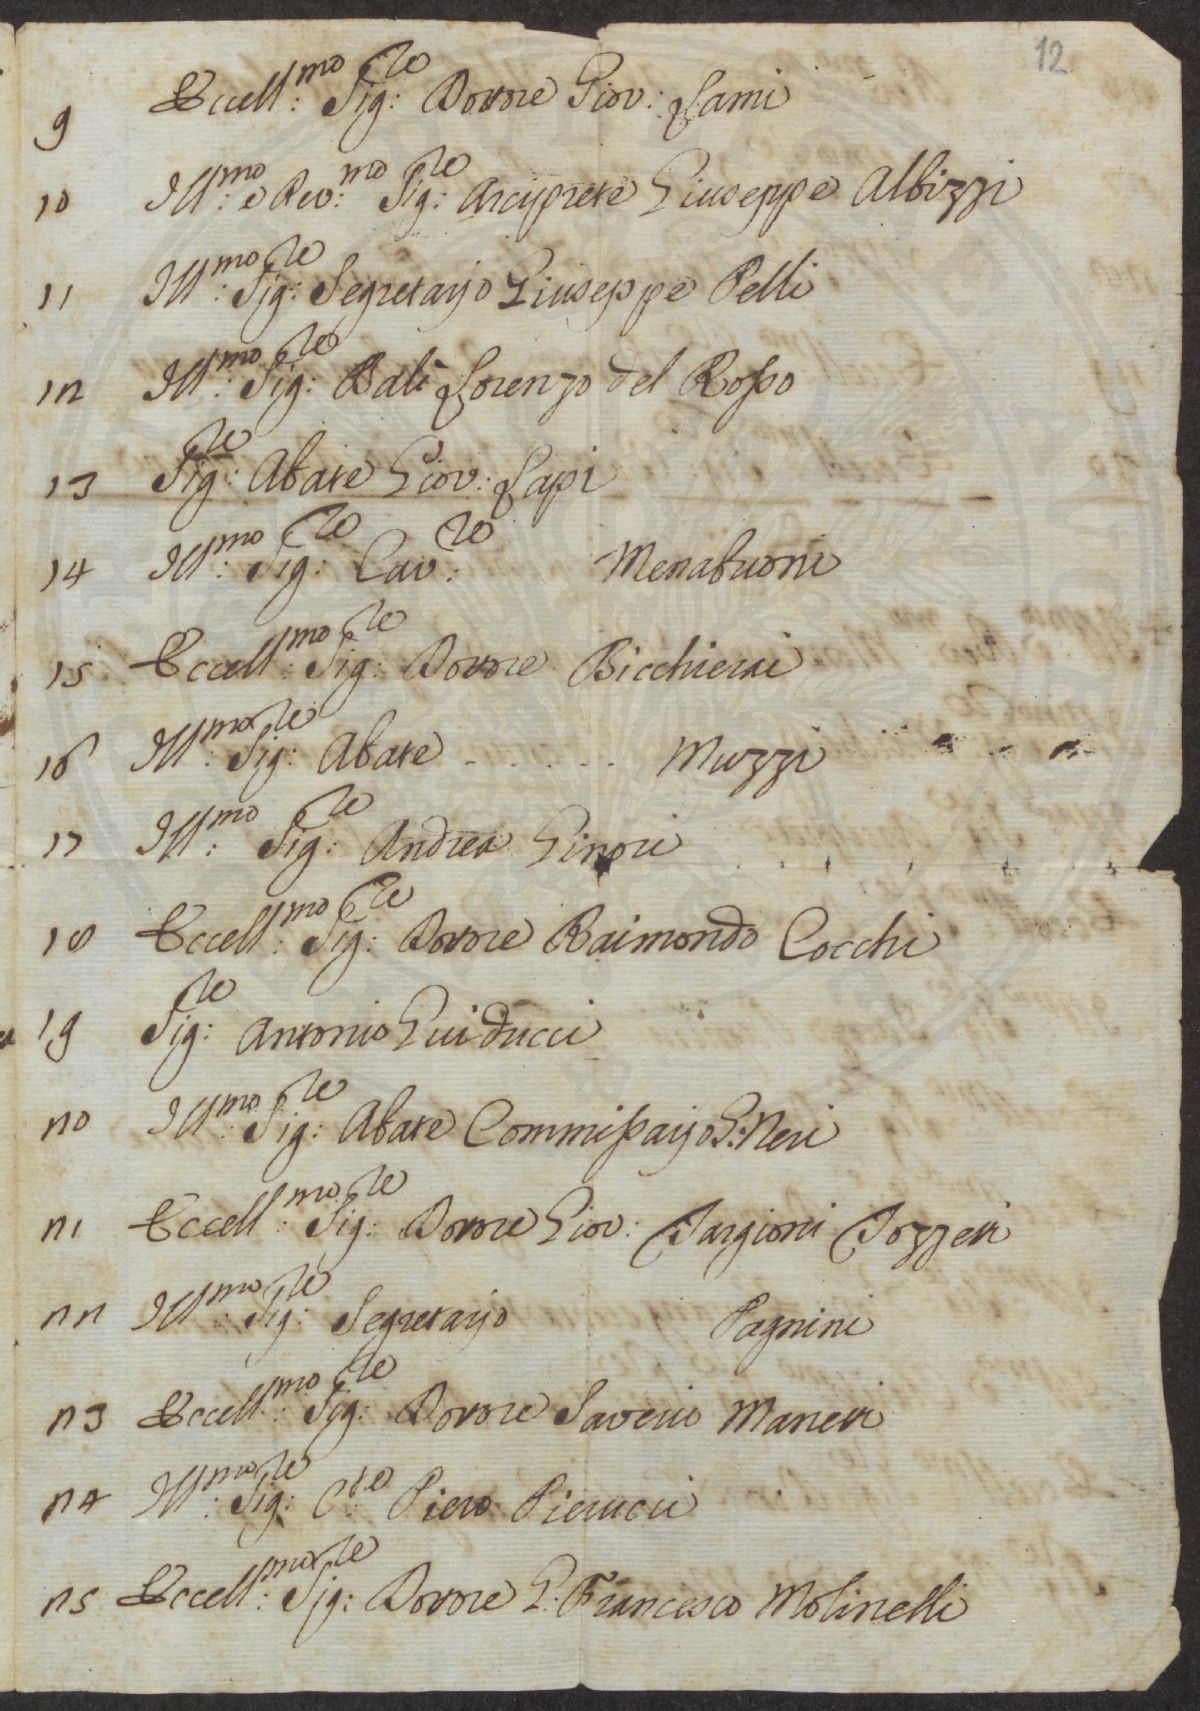 12
9 Eccell:mo Sig:re Dottore Giov: Lami
10 Ill:mo e Rev:mo Sig:re Arcyprete Giuseppe Albizzi
11 Ill:mo Sig:re Segretaryo Giuseppe Pelli
12 Ill:mo Sig:re Balì Lorenzo del Rosso
13 Sig:re Abate Giov: Lapi
14 Ill:mo Sig:re Cav:re Menabuoni
15 Eccell:mo Sig:re Dottore Bicchierai
16 Ill:mo Sig:re Abate - . . . . . Muzzi
17 Ill:mo Sig:re Andrea Ginori
18 Eccell:mo Sig:re Dottore Raimondo Cocchi
19 Sig:re Antonio Guiducci
20 Ill:mo Sig:re Abate Commissaryo G: Neri
21 Eccell:mo Sig:re Dottore Giov: Targioni Tozzetti
22 Ill:mo Sig:re Segretaryo Pagnini
23 Eccell:mo Sig:re Dottore Saverio Manetti
24 Ill:mo Sig:re C:te Piero Pierucci
25 Eccell:mo Sig:re Dottore G: Francesco Molinelli